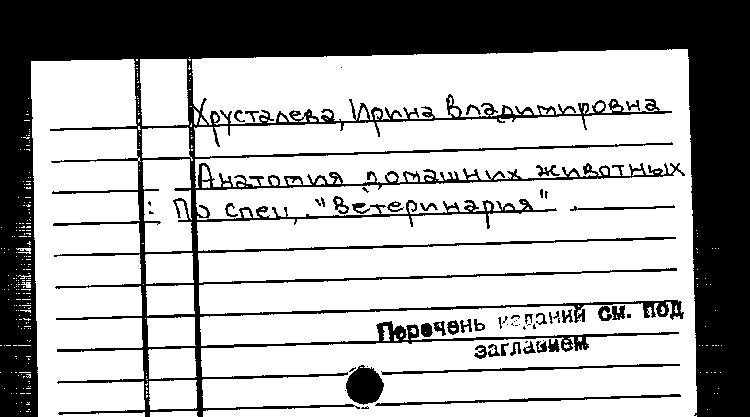 Хрусталева, Ирина Владимировна
Анатомия домашних животных
: По спец. "Ветеринария" .
Перечень изданий см. под
заглавием